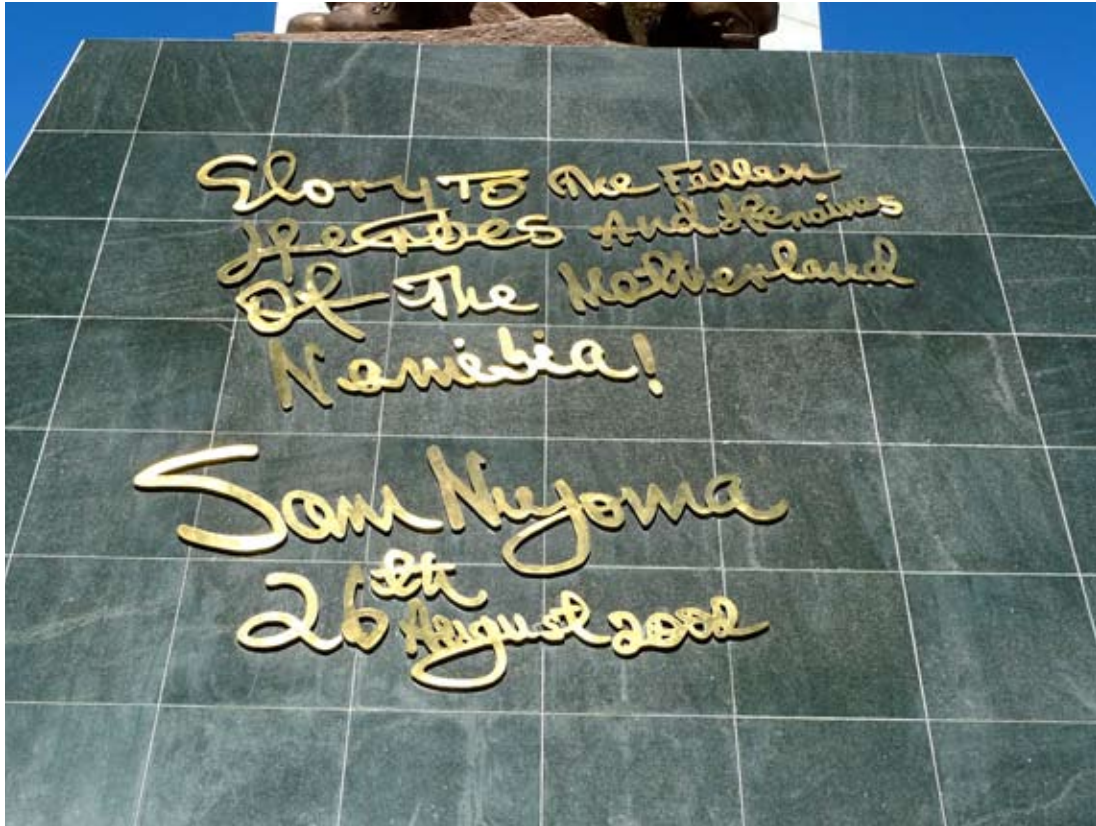 Glory To The Fallen
Heroes And Heroines
Of The Motherland
Namibia!
Sam Nujoma
26th August 2002